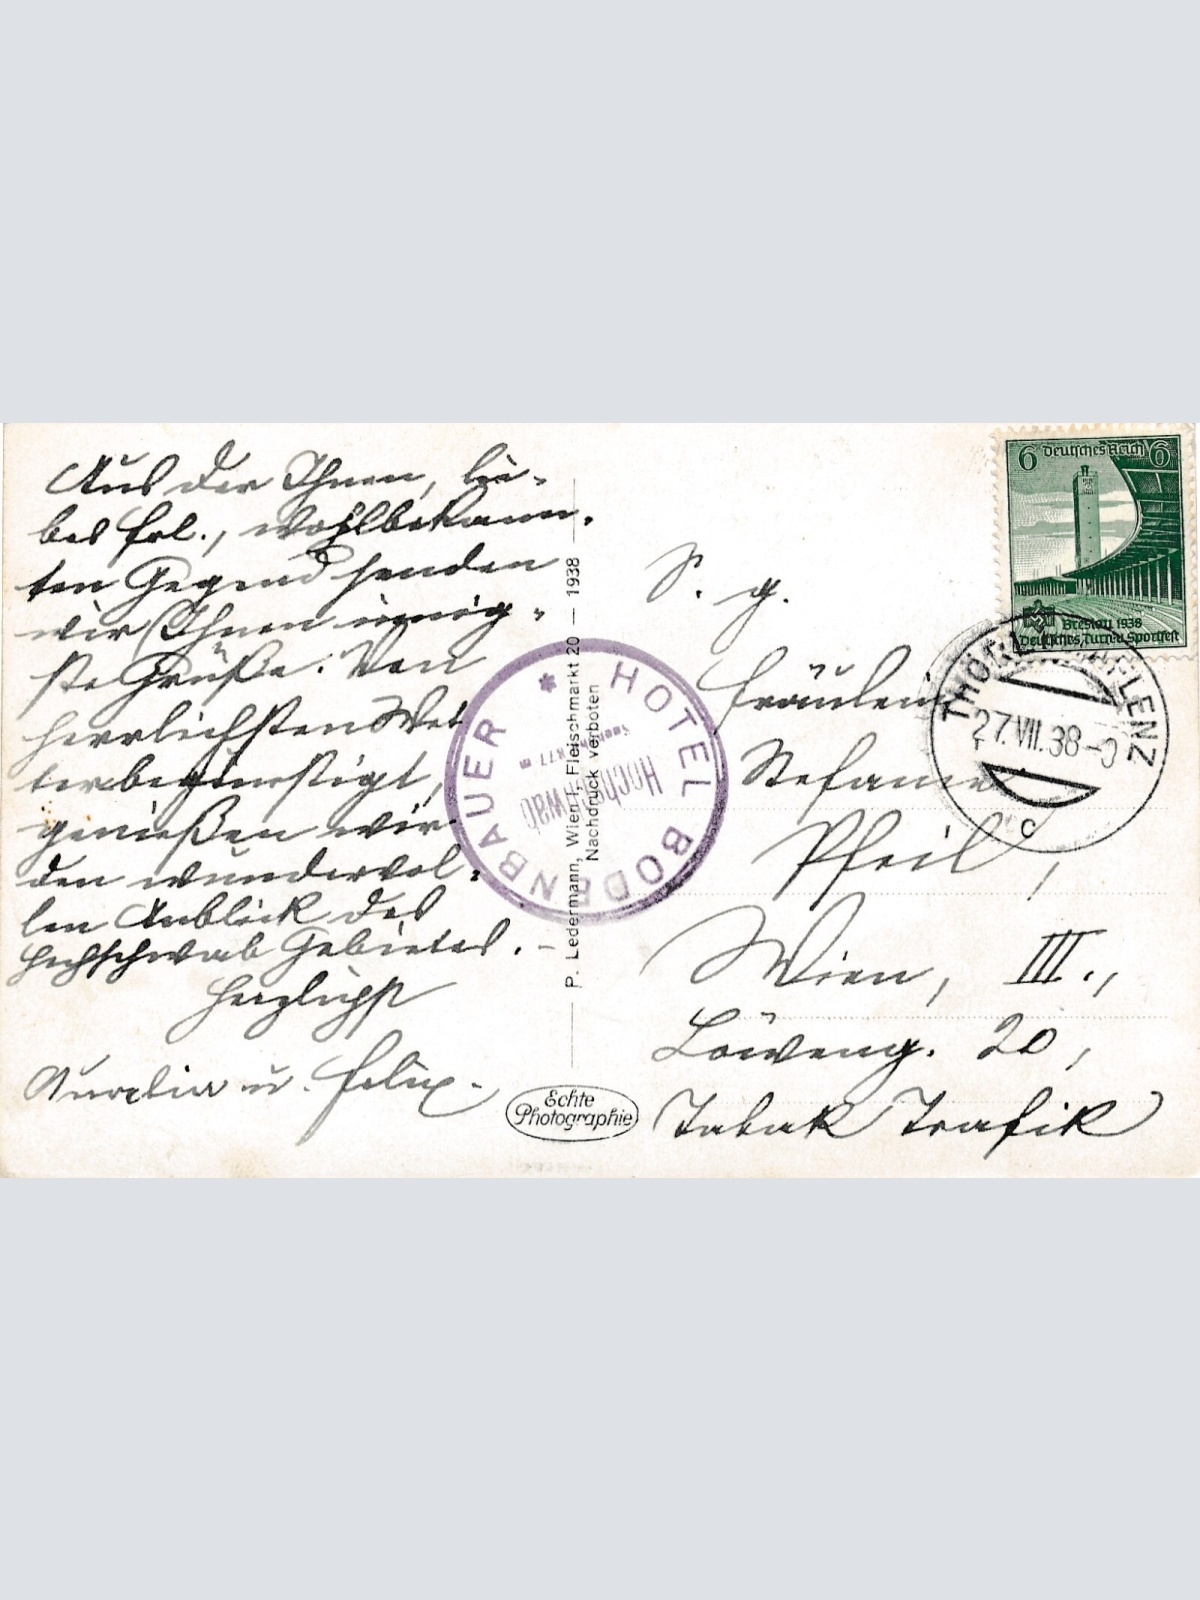 Aus der Ihnen, lie-
bes Frl., wohlbekann-
ten Gegend senden
wir Ihnen innig-
ste Grüße. Von
herrlichsten Wet
terbegünstigt,
genießen wir
den wundervol-
len Anblick des
Hochschwab Gebietes. -
Herzlichst
Aurelia u. Felix.
P. Ledermann, Wien I, Fleischmarkt 20 — 1938
Nachdruck verboten
HOTEL BODENBAUER *
Hochschwab
877 m
Echte
Photographie
6 Deutsches Reich 6
Breslau 1938
Deutsches Turn- u. Sportfest
27.VII.38
c
S. g.
Fräulein
Stefanie
Pfeil,
Wien, III.,
Löweng. 20,
Tabak Trafik